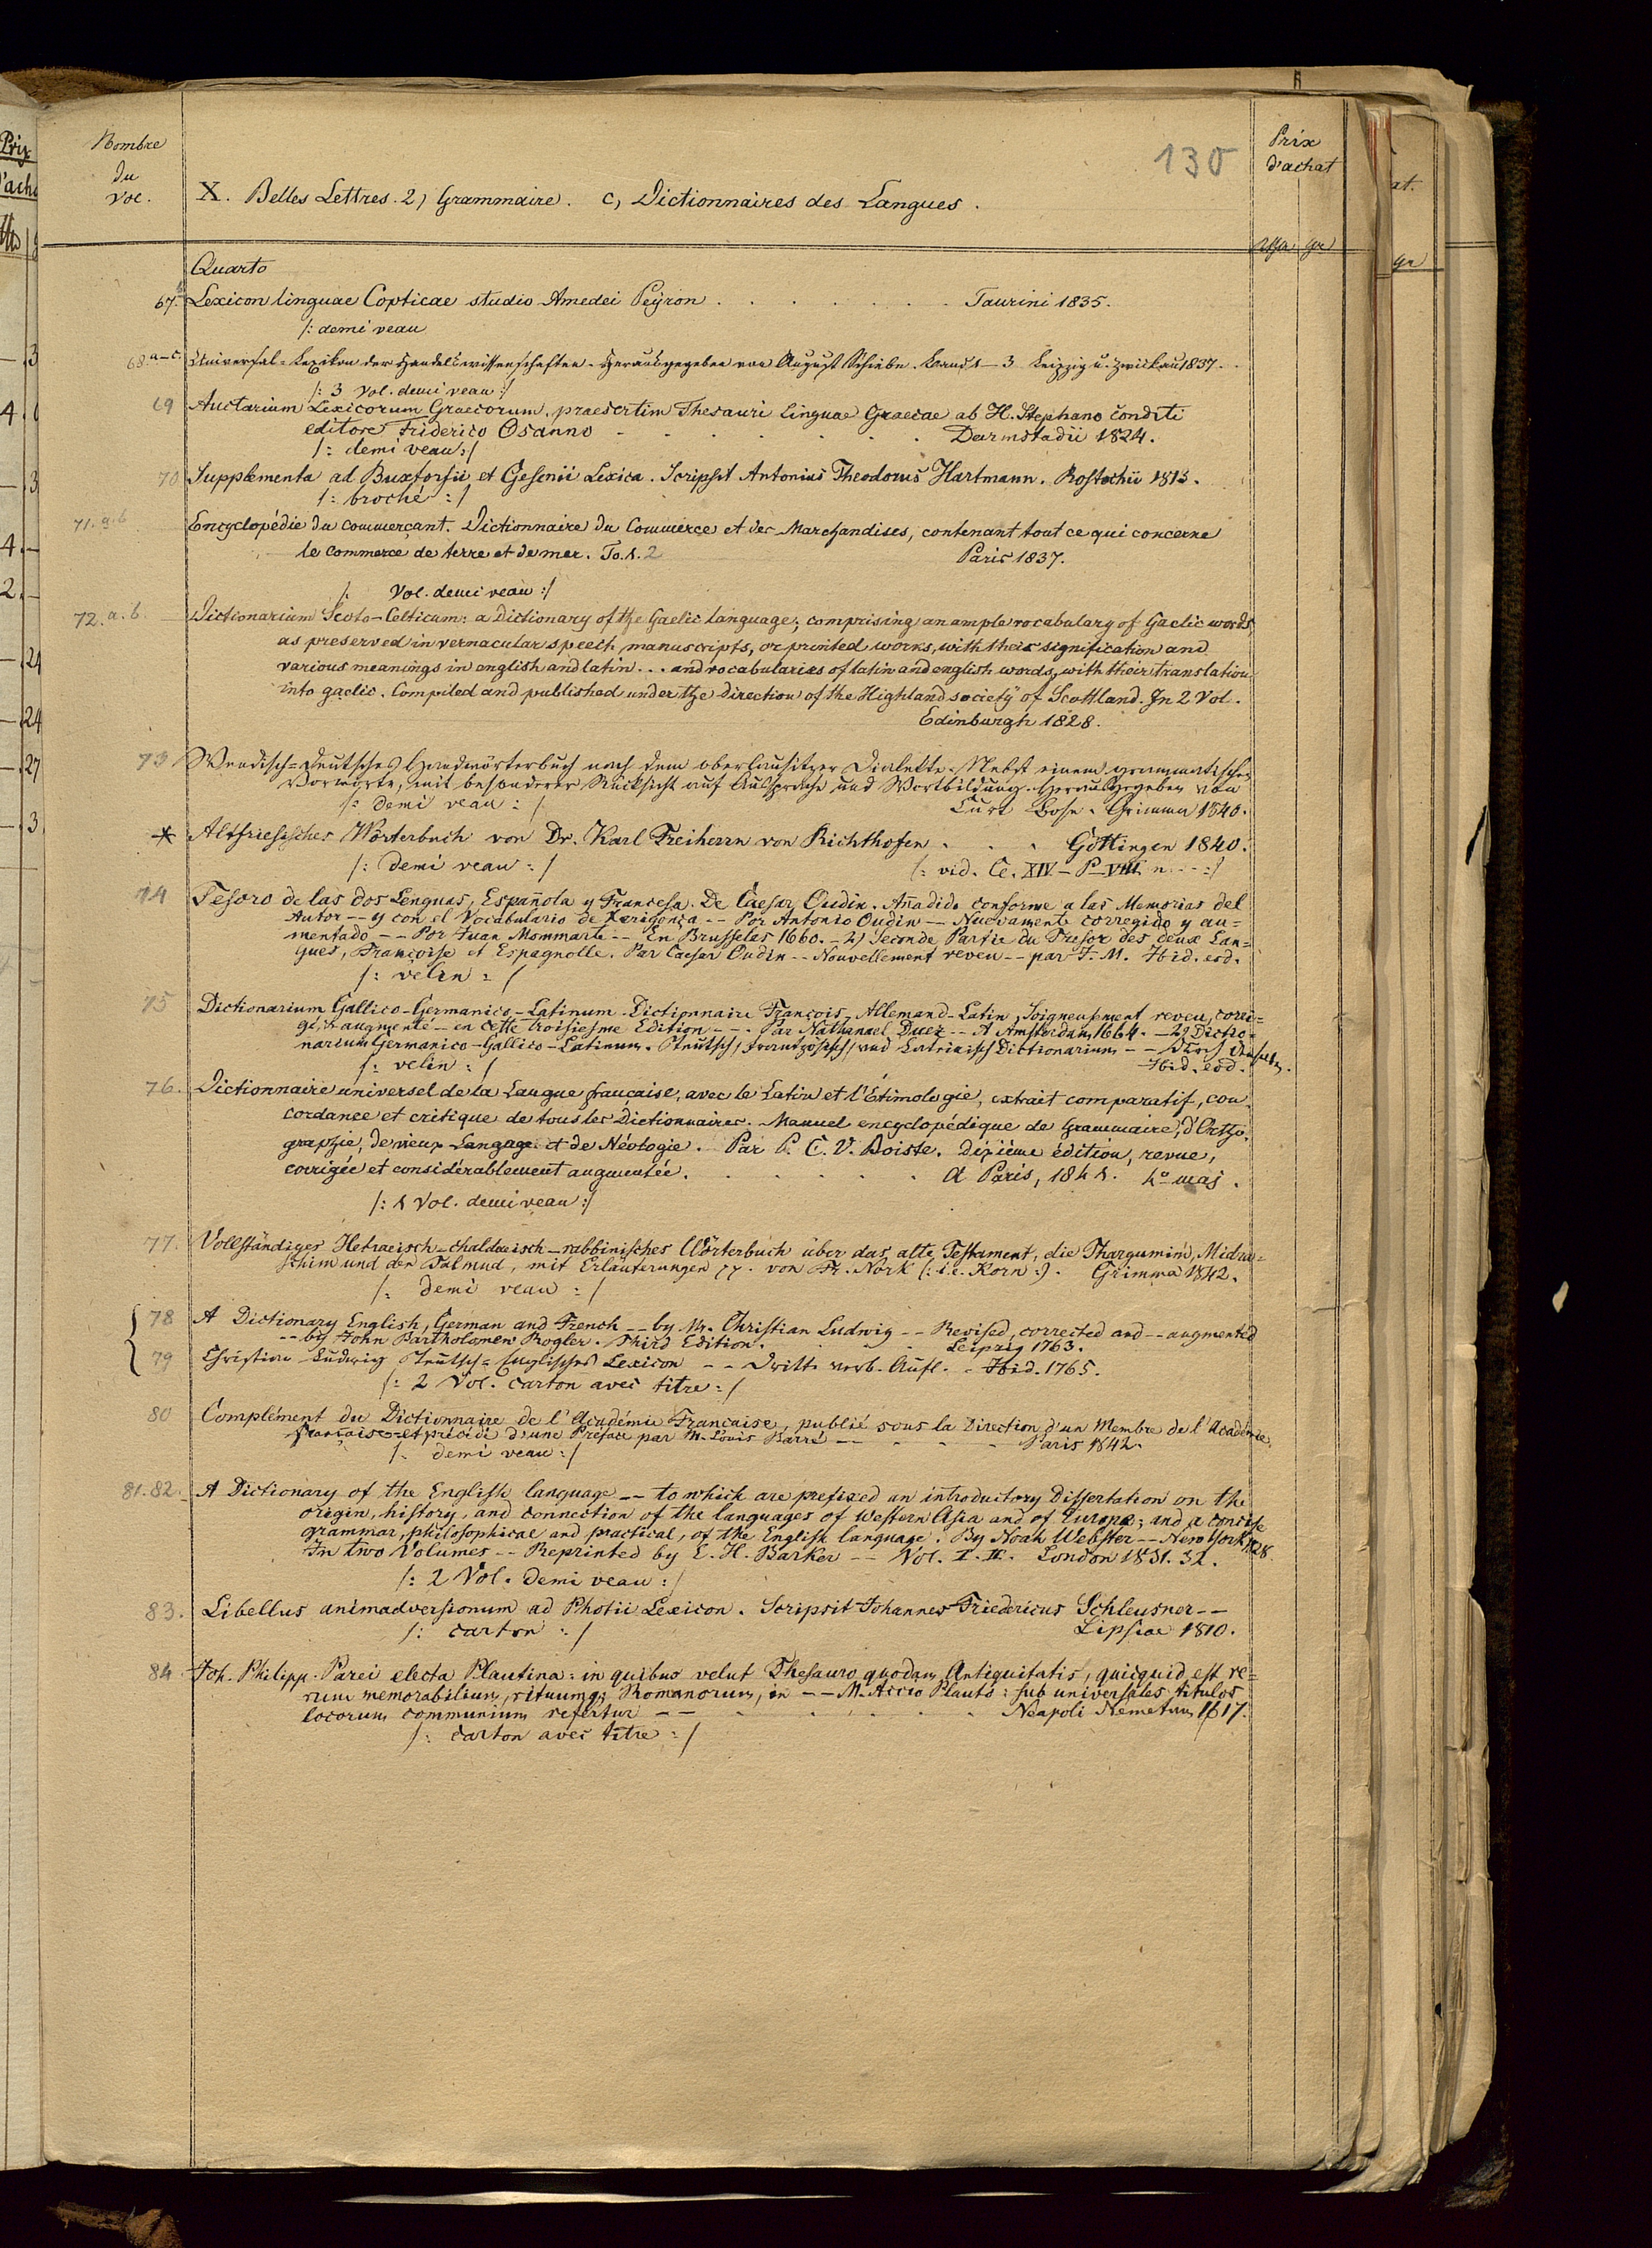 Prix
d'acha
130
Nombre
du
Vol.
X. Belles Lettres. 2) Grammaire. c) Dictionnaires des Langues.
Prix
d'achat
at.
gr
Quarto
67. Lexicon linguae Copticae studio Amedei Peyron . . . . . . . Taurini 1835.
/: demi veau
68.a-c. Universal-Lexikon der Handelswissenschaften. Herausgegeben von August Schiebe. Band 1-3 Leipzig u. Zwickau 1837.
/: 3 Vol. demi veau :/
69 Auctarium Lexicorum Graecorum, praesertim Thesauri linguae Graecae ab H. Stephano conditi
editore Friderico Osanno . . . . . . Darmstadii 1824.
/: demi veau :/
70 Supplementa ad Buxtorfii et Gesenii Lexica. Scripsit Antonius Theodorus Hartmann. Rostochii 1813.
/: broché :/
71. a.b Encyclopédie du commerçant. Dictionnaire du Commerce et des Marchandises, contenant tout ce qui concerne
le commerce de terre et de mer. To. 1. 2 Paris 1837.
/: Vol. demi veau :/
72. a. b. Dictionarium Scoto-Celticum: a Dictionary of the Gaelic language; comprising an ample vocabulary of Gaelic words
as preserved in vernacular speech, manuscripts, or printed works, with their signification and
various meanings in english and latin... and vocabularies of latin and english words, with their translation
into gaelic. Compiled and published under the direction of the Highland society of Scottland. In 2 Vol.
Edinburgh 1828.
73 Wendisch-Deutsches Handwörterbuch nach dem oberlausitzer Dialekte. Nebst einem grammatischen
Vorworte, mit besonderer Rücksicht auf Aussprache und Wortbildung. Herausgegeben von
/: demi veau :/ Curt Bose. Grimma 1840.
* Altfriesisches Wörterbuch von Dr. Karl Freiherrn von Richthofen . . . Göttingen 1840.
/: demi veau :/ /: vid. Ce. XIV - P VIII n. - - :/
74 Tesoro de las dos Lenguas, Española y Francesa. De Caesar Oudin. Añadido conforme a las Memorias del
Autor -- y con el Vocabulario de Xerigonça -- Por Antonio Oudin -- Nuevamente corregido y au-
mentado -- Por Juan Mommarte -- En Brusselas 1660. - 2) Seconde Partie du Tresor des deux Lan-
gues, Françoise et Espagnolle. Par Caesar Oudin -- Nouvellement reveu -- par J. M. Ibid. eod.
/: velin :/
75 Dictionarium Gallico-Germanico-Latinum. Dictionnaire François-Allemand-Latin, Soigneusement reveu, corri-
gé, & augmenté - en cette troisiesme Edition --- Par Nathanael Duez -- A Amsterdam 1664. - 2) Dictio-
narium Germanico-Gallico-Latinum. Teutsch, Frantzösisch, und Lateinisch Dictionarium --
/: velin :/ Ibid. eod.
76. Dictionnaire universel de la Langue française, avec le Latin et l'Etimologie, extrait comparatif, con-
cordance et critique de tous les Dictionnaires. Manuel encyclopédique de Grammaire, d'Ortho-
graphie, de vieux Langage et de Néologie. Par P. C. V. Boiste. dixième édition, revue,
corrigée et considérablement augmentée. . . . . . . à Paris, 1841. 4o maj.
/: 1 Vol. demi veau :/
77. Vollständiges Hebraeisch-chaldaeisch-rabbinisches Wörterbuch über das alte Testament, die Thargumim, Midra-
schim und den Talmud, mit Erläuterungen von Fr. Nork (: i.e. Korn :). Grimma 1842.
/: demi veau :/
78 A Dictionary English, German and French -- by Mr. Christian Ludwig -- Revised, corrected and -- augmented
-- by John Bartholomew Rogler. Third Edition. . . . Leipzig 1763.
79 Christian Ludwig Teutsch-Englisches Lexicon -- Dritte verb. Aufl. - Ibid. 1765.
/: 2 Vol. carton avec titre :/
80 Complément du Dictionnaire de l'Académie Française, publié sous la Direction d'un Membre de l'Académie
française et précédé d'une Préface par M. Louis Barré -- . . . Paris 1842.
/: demi veau :/
81. 82. A Dictionary of the English language -- to which are prefixed an introductory Dissertation on the
origin, history, and connection of the languages of Western Asia and of Europe; and a concise
grammar, philosophical and practical, of the English language. By Noah Webster -- New York 1828.
In two Volumes -- Reprinted by E. H. Barker -- Vol. I. II. London 1831. 32.
/: 2 Vol. demi veau :/
83. Libellus animadversionum ad Photii Lexicon. Scripsit Johannes Friedericus Schleusner --
/: carton :/ Lipsiae 1810.
84. Joh. Philipp. Parei electa Plautina: in quibus velut Thesauro quodam Antiquitatis, quicquid est re-
rum memorabilium, rituumq; Romanorum, in -- M. Accio Plauto: sub universales titulos
locorum communium refertur -- . . . . . . Neapoli Nemetum 1617.
/: carton avec titre :/